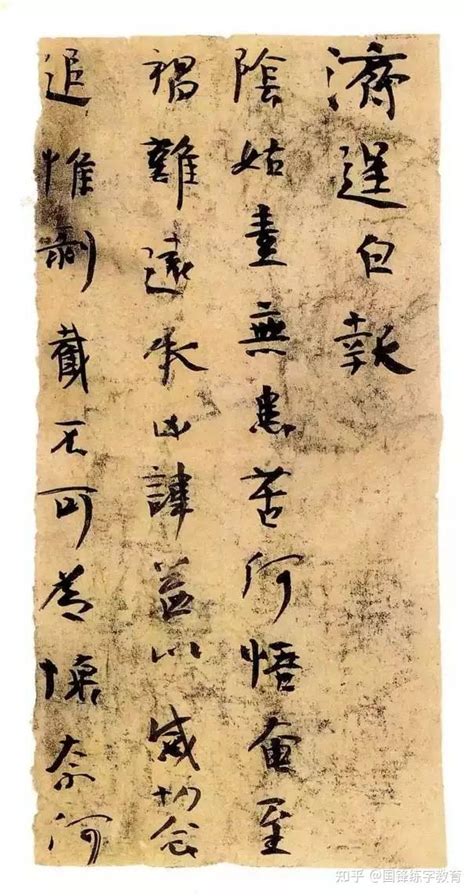 濟逞白報
陰姑素無患苦何悟奄至
禍難遠承凶諱益以感切念
追惟剥截不可為懷奈何
知乎 @国锋练字教育